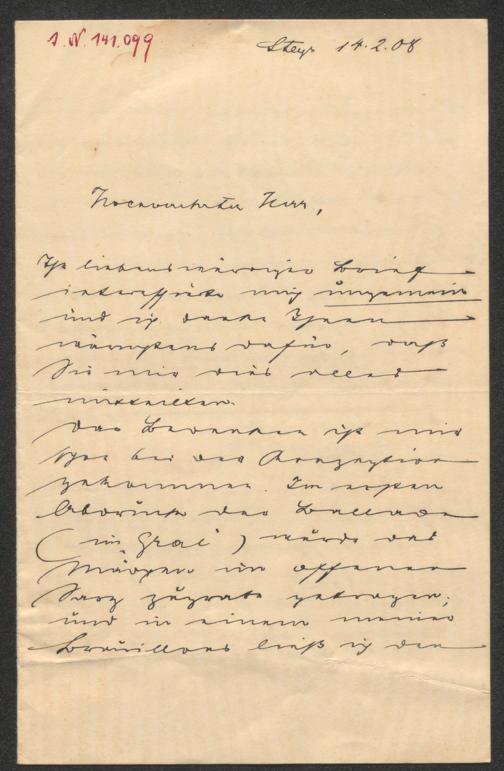 I. N. 141.099
Steyr 14.2.08
Hochverehrter Herr,
Ihr liebenswürdiger Brief
interessirte mich ungemein
und ich danke Ihnen
wärmstens dafür, daß
Sie mir dies alles
mitteilten.
Das Bedenken ist mir
schon bei der Konzeption
gekommen. Im ersten
Abdruck der Ballade
(im „Gral“) wurde das
Mädchen im offenen
Sarg zugrabe getragen;
und in einem meiner
Brouillons ließ ich den